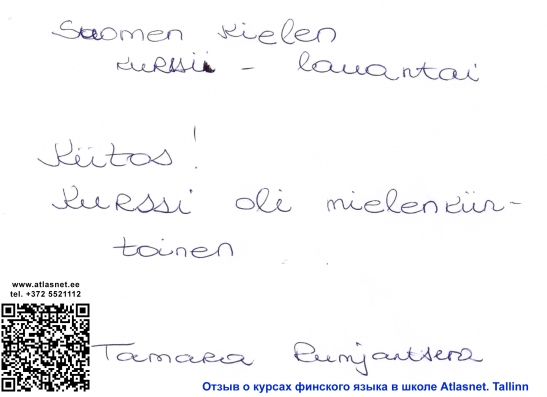 Suomen kielen
kurssii - lauantai
Kiitos!
Kurssi oli mielenkiin-
toinen
www.atlasnet.ee
tel. +372 5521112
Tamara Rumjantseva
Отзыв о курсах финского языка в школе Atlasnet. Tallinn